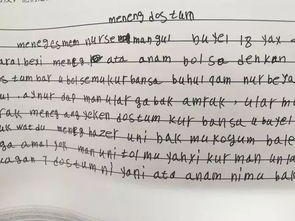 meneng dostum
menegesmem nurse mangul buyel 18 yax
aralbexi meneg ata anam bolsa denkan
s tum bar ubolsemu kurbansa buhulgam nurbeya
aynur dap manular gabak amrak, ular m
rak meneg ang yeken dostum kurbansa u buyel
uk watdu meneg hazer uni bak mukogum bale
ga amal yok man uni tolmu yahxi kurman unla
uagan 7 dostum ni yani ata anam nimu bak